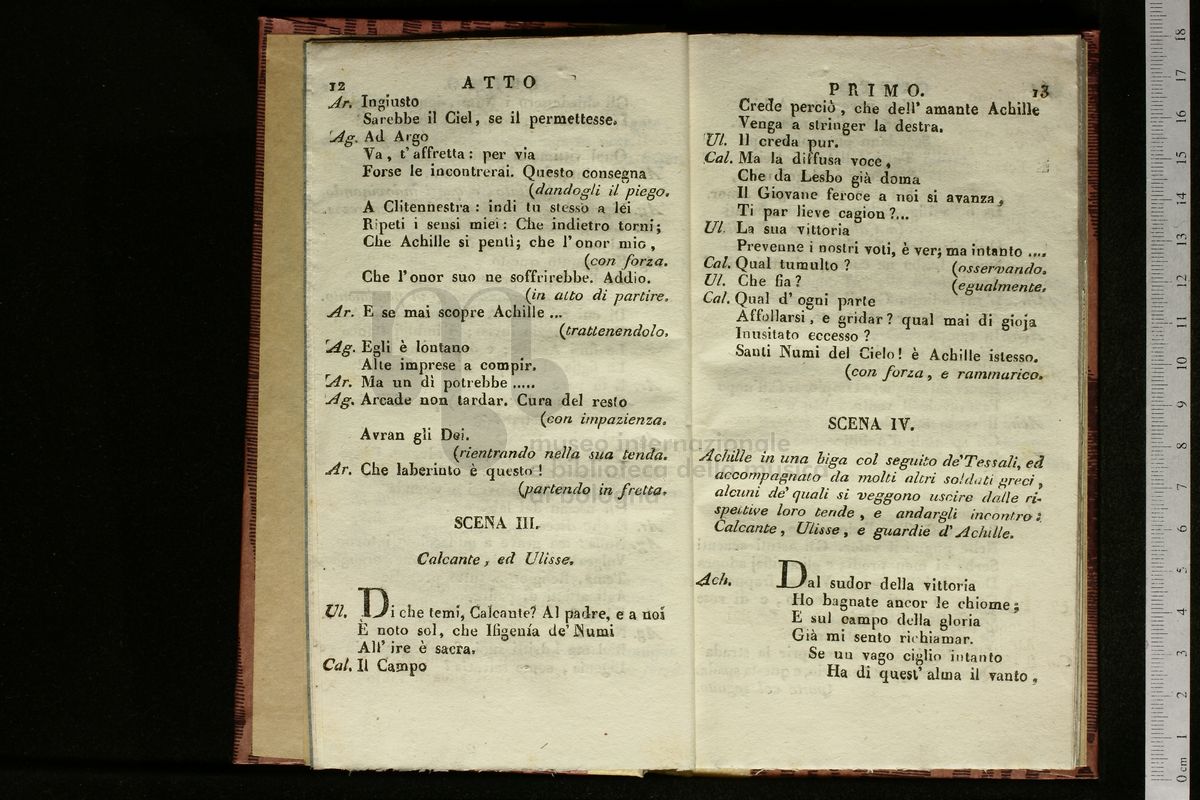 12 ATTO
Ar. Ingiusto
Sarebbe il Ciel, se il permettesse.
Ag. Ad Argo
Va, t'affretta: per via
Forse le incontrerai. Questo consegna
(dandogli il piego.
A Clitennestra: indi tu stesso a lei
Ripeti i sensi miei: Che indietro torni;
Che Achille si pentì; che l'onor mio,
(con forza.
Che l'onor suo ne soffrirebbe. Addio.
(in atto di partire.
Ar. E se mai scopre Achille ...
(trattenendolo.
Ag. Egli è lontano
Alte imprese a compir.
Ar. Ma un dì potrebbe .....
Ag. Arcade non tardar. Cura del resto
(con impazienza.
Avran gli Dei.
(rientrando nella sua tenda.
Ar. Che laberinto è questo!
(partendo in fretta.
SCENA III.
Calcante, ed Ulisse.
Ul. Di che temi, Calcante? Al padre, e a noi
È noto sol, che Ifigenía de' Numi
All' ire è sacra.
Cal. Il Campo
PRIMO. 13
Crede perciò, che dell' amante Achille
Venga a stringer la destra.
Ul. Il creda pur.
Cal. Ma la diffusa voce,
Che da Lesbo già doma
Il Giovane feroce a noi si avanza,
Ti par lieve cagion?...
Ul. La sua vittoria
Prevenne i nostri voti, è ver; ma intanto ....
Cal. Qual tumulto? (osservando.
Ul. Che fia? (egualmente.
Cal. Qual d' ogni parte
Affollarsi, e gridar? qual mai di gioja
Inusitato eccesso?
Santi Numi del Cielo! è Achille istesso.
(con forza, e rammarico.
SCENA IV.
Achille in una biga col seguito de' Tessali, ed
accompagnato da molti altri soldati greci,
alcuni de' quali si veggono uscire dalle ri-
spettive loro tende, e andargli incontro:
Calcante, Ulisse, e guardie d' Achille.
Ach. Dal sudor della vittoria
Ho bagnate ancor le chiome;
E sul campo della gloria
Già mi sento richiamar.
Se un vago ciglio intanto
Ha di quest' alma il vanto,
museo internazionale
e biblioteca della musica
di bologna
0 cm 1 2 3 4 5 6 7 8 9 10 11 12 13 14 15 16 17 18